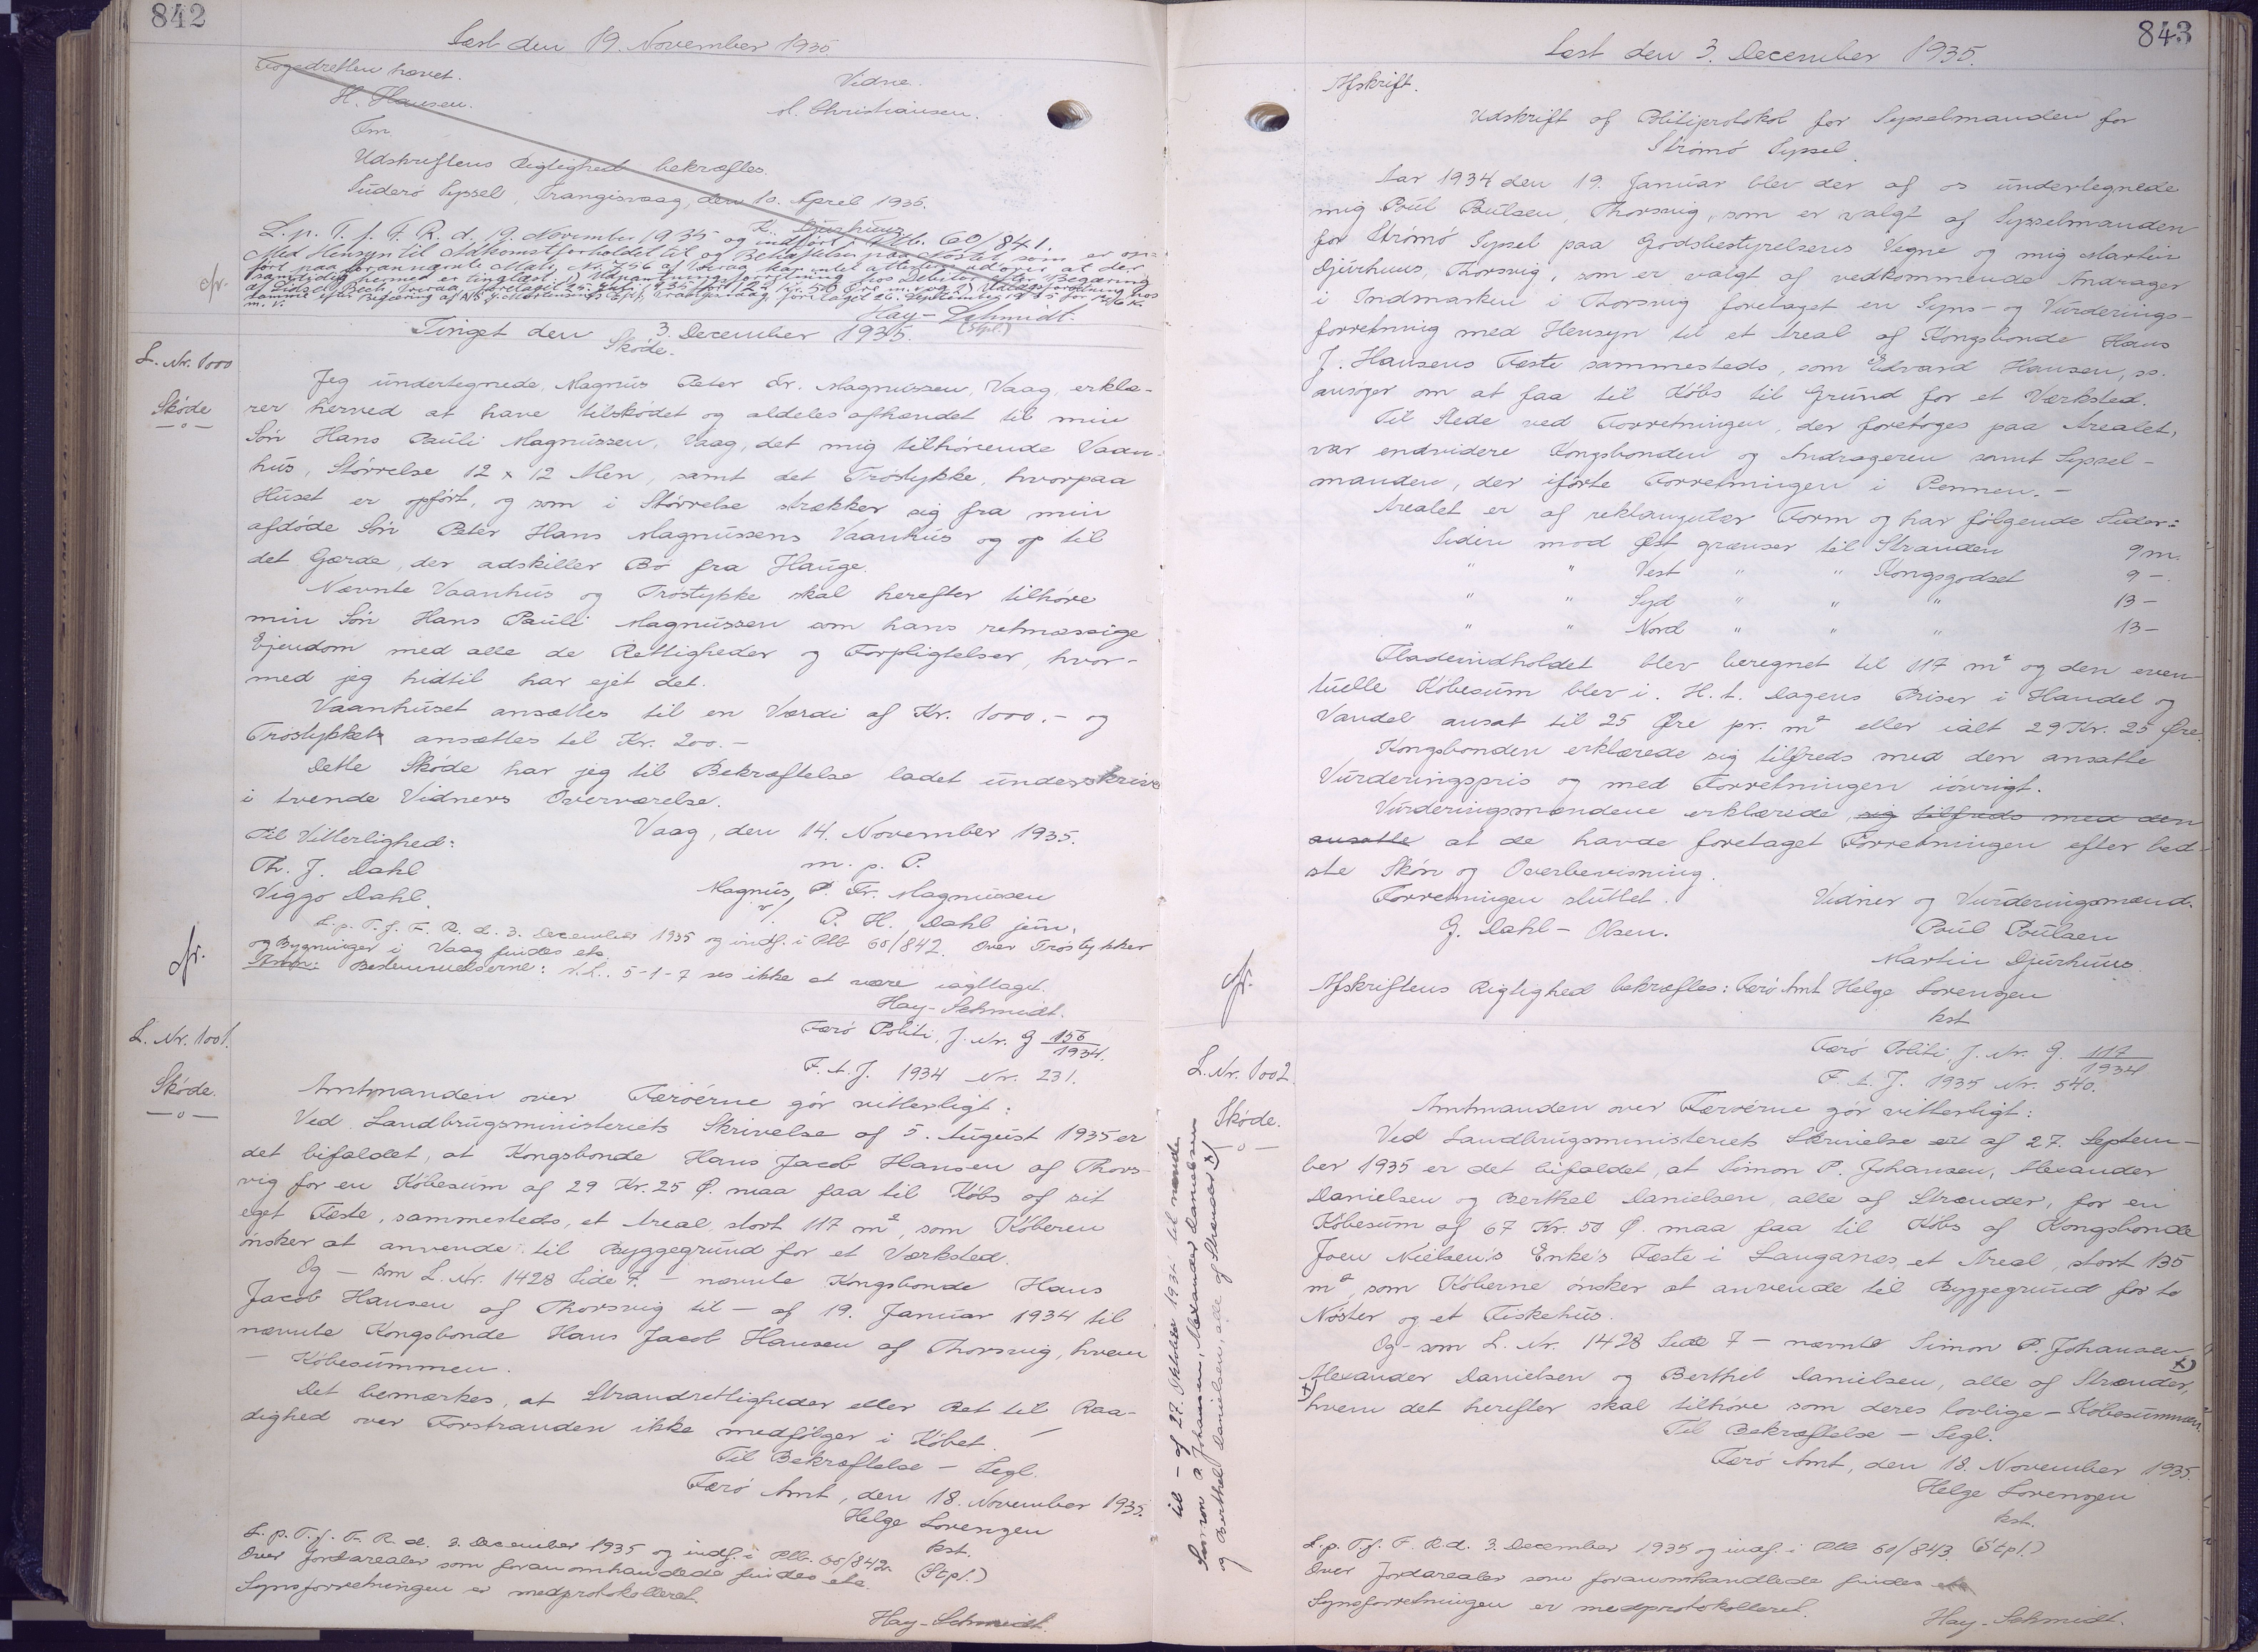 842
Læst den 19. November 1935.
Fogedretten hævet.
Vidne.
H. Hansen.
M. Christiansen.
Fm.
Udskriftens Rigtighed bekræftes.
Suderö Syssel, Trangisvaag, den 10. April 1935.
K. Djurhuus
L. p. T. f. F. R. d. 19. November 1935 og indført i Plb. 60/841.
Med Hensyn til Adkomstforholdet til og Behæftelsen paa Godset som er op-
ført paa forannævnte Matr. Nr. 756 af Vaag
samtidig hermed tinglæst: 1) Udpantningsforretning
af Lidsel Bech, Tveraa, foretaget 25. Juli 1935 for 125 Kr. 50 Øre m. v. og 2) Udlægsforretning hos
samme efter Begæring af A/S J. Mortensens Eftf. Trangisvaag foretaget 26. September 1935 for
m. v.
Hay-Schmidt.
(Stpl.)
cfr.
Tinget den 3. December 1935.
L. Nr. 1000
Skøde.
Skøde
—o—
Jeg undertegnede, Magnus Peter Fr. Magnussen, Vaag, erklæ-
rer herved at have tilskødet og aldeles afhændet til min
Søn Hans Pauli Magnussen, Vaag, det mig tilhørende Vaan-
hus, Størrelse 12 x 12 Alen, samt det Trøstykke, hvorpaa
Huset er opført, og som i Størrelse strækker sig fra min
afdøde Søn Peter Hans Magnussens Vaanhus og op til
det Gærde, der adskiller Bø fra Hauge.
Nævnte Vaanhus og Trøstykke skal herefter tilhøre
min Søn Hans Pauli Magnussen som hans retmæssige
Ejendom med alle de Rettigheder og Forpligtelser, hvor-
med jeg hidtil har ejet det.
Vaanhuset ansættes til en Værdi af Kr. 1000.- og
Trøstykket ansættes til Kr. 200.-
Dette Skøde har jeg til Bekræftelse ladet underskrive
i tvende Vidners Overværelse.
Vaag, den 14. November 1935.
Til Vitterlighed:
m. p. P.
Th. J. Dahl
Magnus P. Fr. Magnussen
Viggo Dahl.
v/ P. H. Dahl jun.
L. p. T. f. F. R. d. 3. December 1935 og indf. i Plb 60/842. Over Trøstykker
og Bygninger i Vaag findes etc.
cfr.
Anm: Bestemmelserne: N.L. 5-1-7 ses ikke at være iagttaget.
Hay-Schmidt.
L. Nr. 1001.
Færø Politi, J. Nr. G 156/1934.
F. A. J. 1934 Nr. 231.
Skøde.
—o—
Amtmanden over Færøerne gør vitterligt:
Ved Landbrugsministeriets Skrivelse af 5. August 1935 er
det bifaldet, at Kongsbonde Hans Jacob Hansen af Thors-
vig for en Købesum af 29 Kr. 25 Ø. maa faa til Købs af sit
eget Fæste, sammesteds, et Areal, stort 117 m², som Køberen
ønsker at anvende til Byggegrund for et Værksted.
Og – som L. Nr. 1428 Side 7. – nævnte Kongsbonde Hans
Jacob Hansen af Thorsvig til – af 19. Januar 1934 til
nævnte Kongsbonde Hans Jacob Hansen af Thorsvig, hvem
– Købesummen.
Det bemærkes, at Strandrettigheder eller Ret til Raa-
dighed over Forstranden ikke medfølger i Købet.
Til Bekræftelse – Segl.
Færø Amt, den 18. November 1935.
Helge Lorenzen
kst.
(Stpl.)
L. p. T. f. F. R. d. 3. December 1935 og indf. i Plb. 60/842
Over Jordarealer som foranomhandlede findes etc.
Synsforretningen er medprotokolleret.
Hay-Schmidt.
843
Læst den 3. December 1935.
Afskrift.
Udskrift af Politiprotokol for Sysselmanden for
Strømø Syssel.
Aar 1934 den 19. Januar blev der af os undertegnede
mig Poul Poulsen, Thorsvig, som er valgt af Sysselmanden
for Strømø Syssel paa Godsbestyrelsens Vegne og mig Martin
Djurhuus, Thorsvig, som er valgt af vedkommende Andrager
i Indmarken i Thorsvig foretaget en Syns- og Vurderings-
forretning med Hensyn til et Areal af Kongsbonde Hans
J. Hansens Fæste sammesteds, som Edvard Hansen, ss.
ansøger om at faa til Købs til Grund for et Værksted.
Til Stede ved Forretningen, der foretoges paa Arealet,
var endvidere Kongsbonden og Andrageren samt Syssel-
manden, der iførte Forretningen i Pennen.-
Arealet er af rektangulær Form og har følgende Sider:
Siden mod Øst grænser til Stranden 9 m.
" " Vest " " Kongsgodset 9 -.
" " Syd " " " 13 -
" " Nord " " " 13 -
Fladeindholdet blev beregnet til 117 m² og den even-
tuelle Købesum blev i. H. t. Dagens Priser i Handel og
Vandel ansat til 25 Øre pr. m² eller ialt 29 Kr. 25 Øre.
Kongsbonden erklærede sig tilfreds med den ansatte
Vurderingspris og med Forretningen iøvrigt.
Vurderingsmændene erklærede sig tilfreds med den
ansatte at de havde foretaget Forretningen efter bed-
ste Skøn og Overbevisning.
Forretningen sluttet.
Vidner og Vurderingsmænd.
G. Dahl-Olsen.
Poul Poulsen
Martin Djurhuus.
cfr.
Afskriftens Rigtighed bekræftes: Færø Amt Helge Lorenzen
kst
L. Nr. 1002.
Færø Politi, J. Nr. G. 117/1934
F. A. J. 1935 Nr. 540.
Skøde.
—o—
Amtmanden over Færøerne gør vitterligt:
Ved Landbrugsministeriets Skrivelse af 27. Septem-
ber 1935 er det bifaldet, at Simon P. Johansen, Alexander
Danielsen og Berthel Danielsen, alle af Strænder, for en
Købesum af 67 Kr. 50 Ø. maa faa til Købs af Kongsbonde
Joen Nielsen's Enke's Fæste i Langanæs, et Areal, stort 135
m², som Køberne ønsker at anvende til Byggegrund for to
Nøster og et Fiskehus.
Og – som L. Nr. 1428 Side 7 – nævnte Simon P. Johansen
Alexander Danielsen og Berthel Danielsen, alle af Strænder, x)
x) hvem det herefter skal tilhøre som deres lovlige – Købesummen.
Til Bekræftelse – Segl.
Færø Amt, den 18. November 1935.
Helge Lorenzen
kst.
L. p. T. f. F. R. d. 3. December 1935 og indf. i Plb 60/843. (Stpl.)
Over Jordarealer som foranomhandlede findes etc
Synsforretningen er medprotokolleret.
Hay-Schmidt.
til – af 27. Oktober 1934 til nævnte
Simon P. Johansen, Alexander Danielsen
og Berthel Danielsen, alle af Strænder, x)